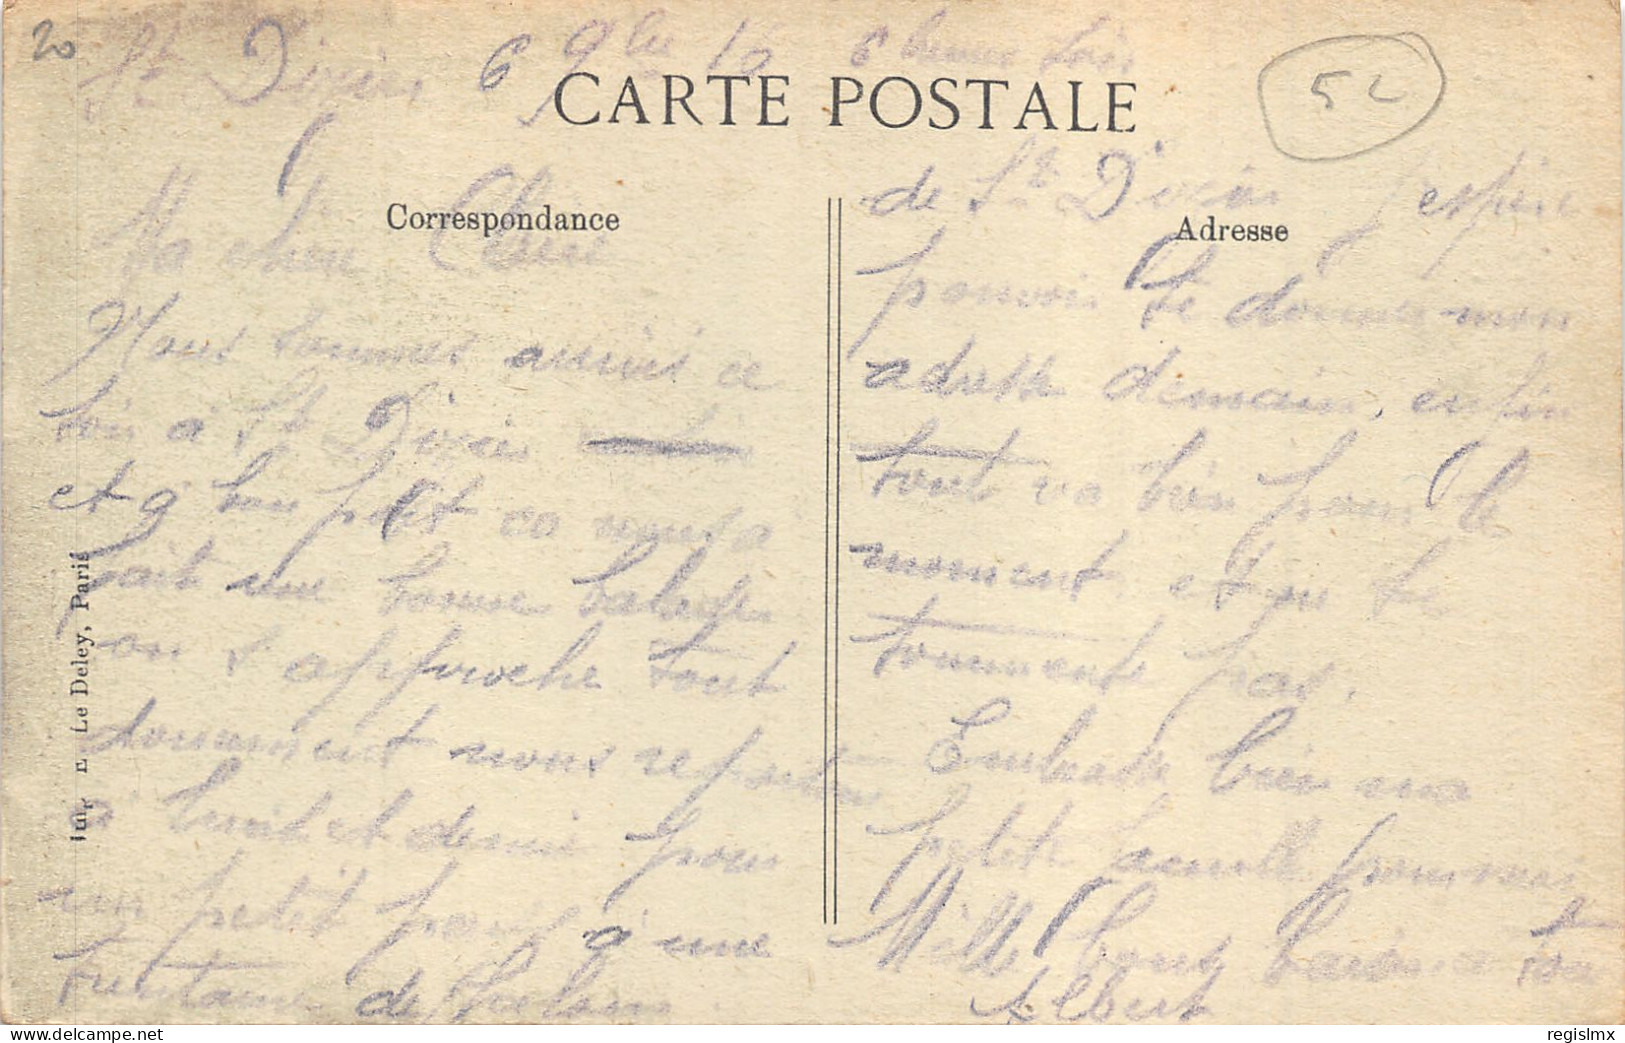 20
St Dizier 6 9bre 16 6 heures soir
CARTE POSTALE
52
Correspondance
Ma chère
Nous sommes arrivés ce
soir à St Dizier
et 9 bon petit ca nous a
fait une bonne balade
on s'approche tout
doucement nous repartons
a huit et demie pour
un petit patelin à une
trentaine de
Imp. E. Le Deley, Paris
Adresse
de St Dizier j'espère
pouvoir te donner mon
adresse demain, enfin
tout va bien pour le
moment, et ne te
tourmente pas.
Embrasse bien ma
petite famille pour moi
Mille bons baisers a toi
Albert
regislmx